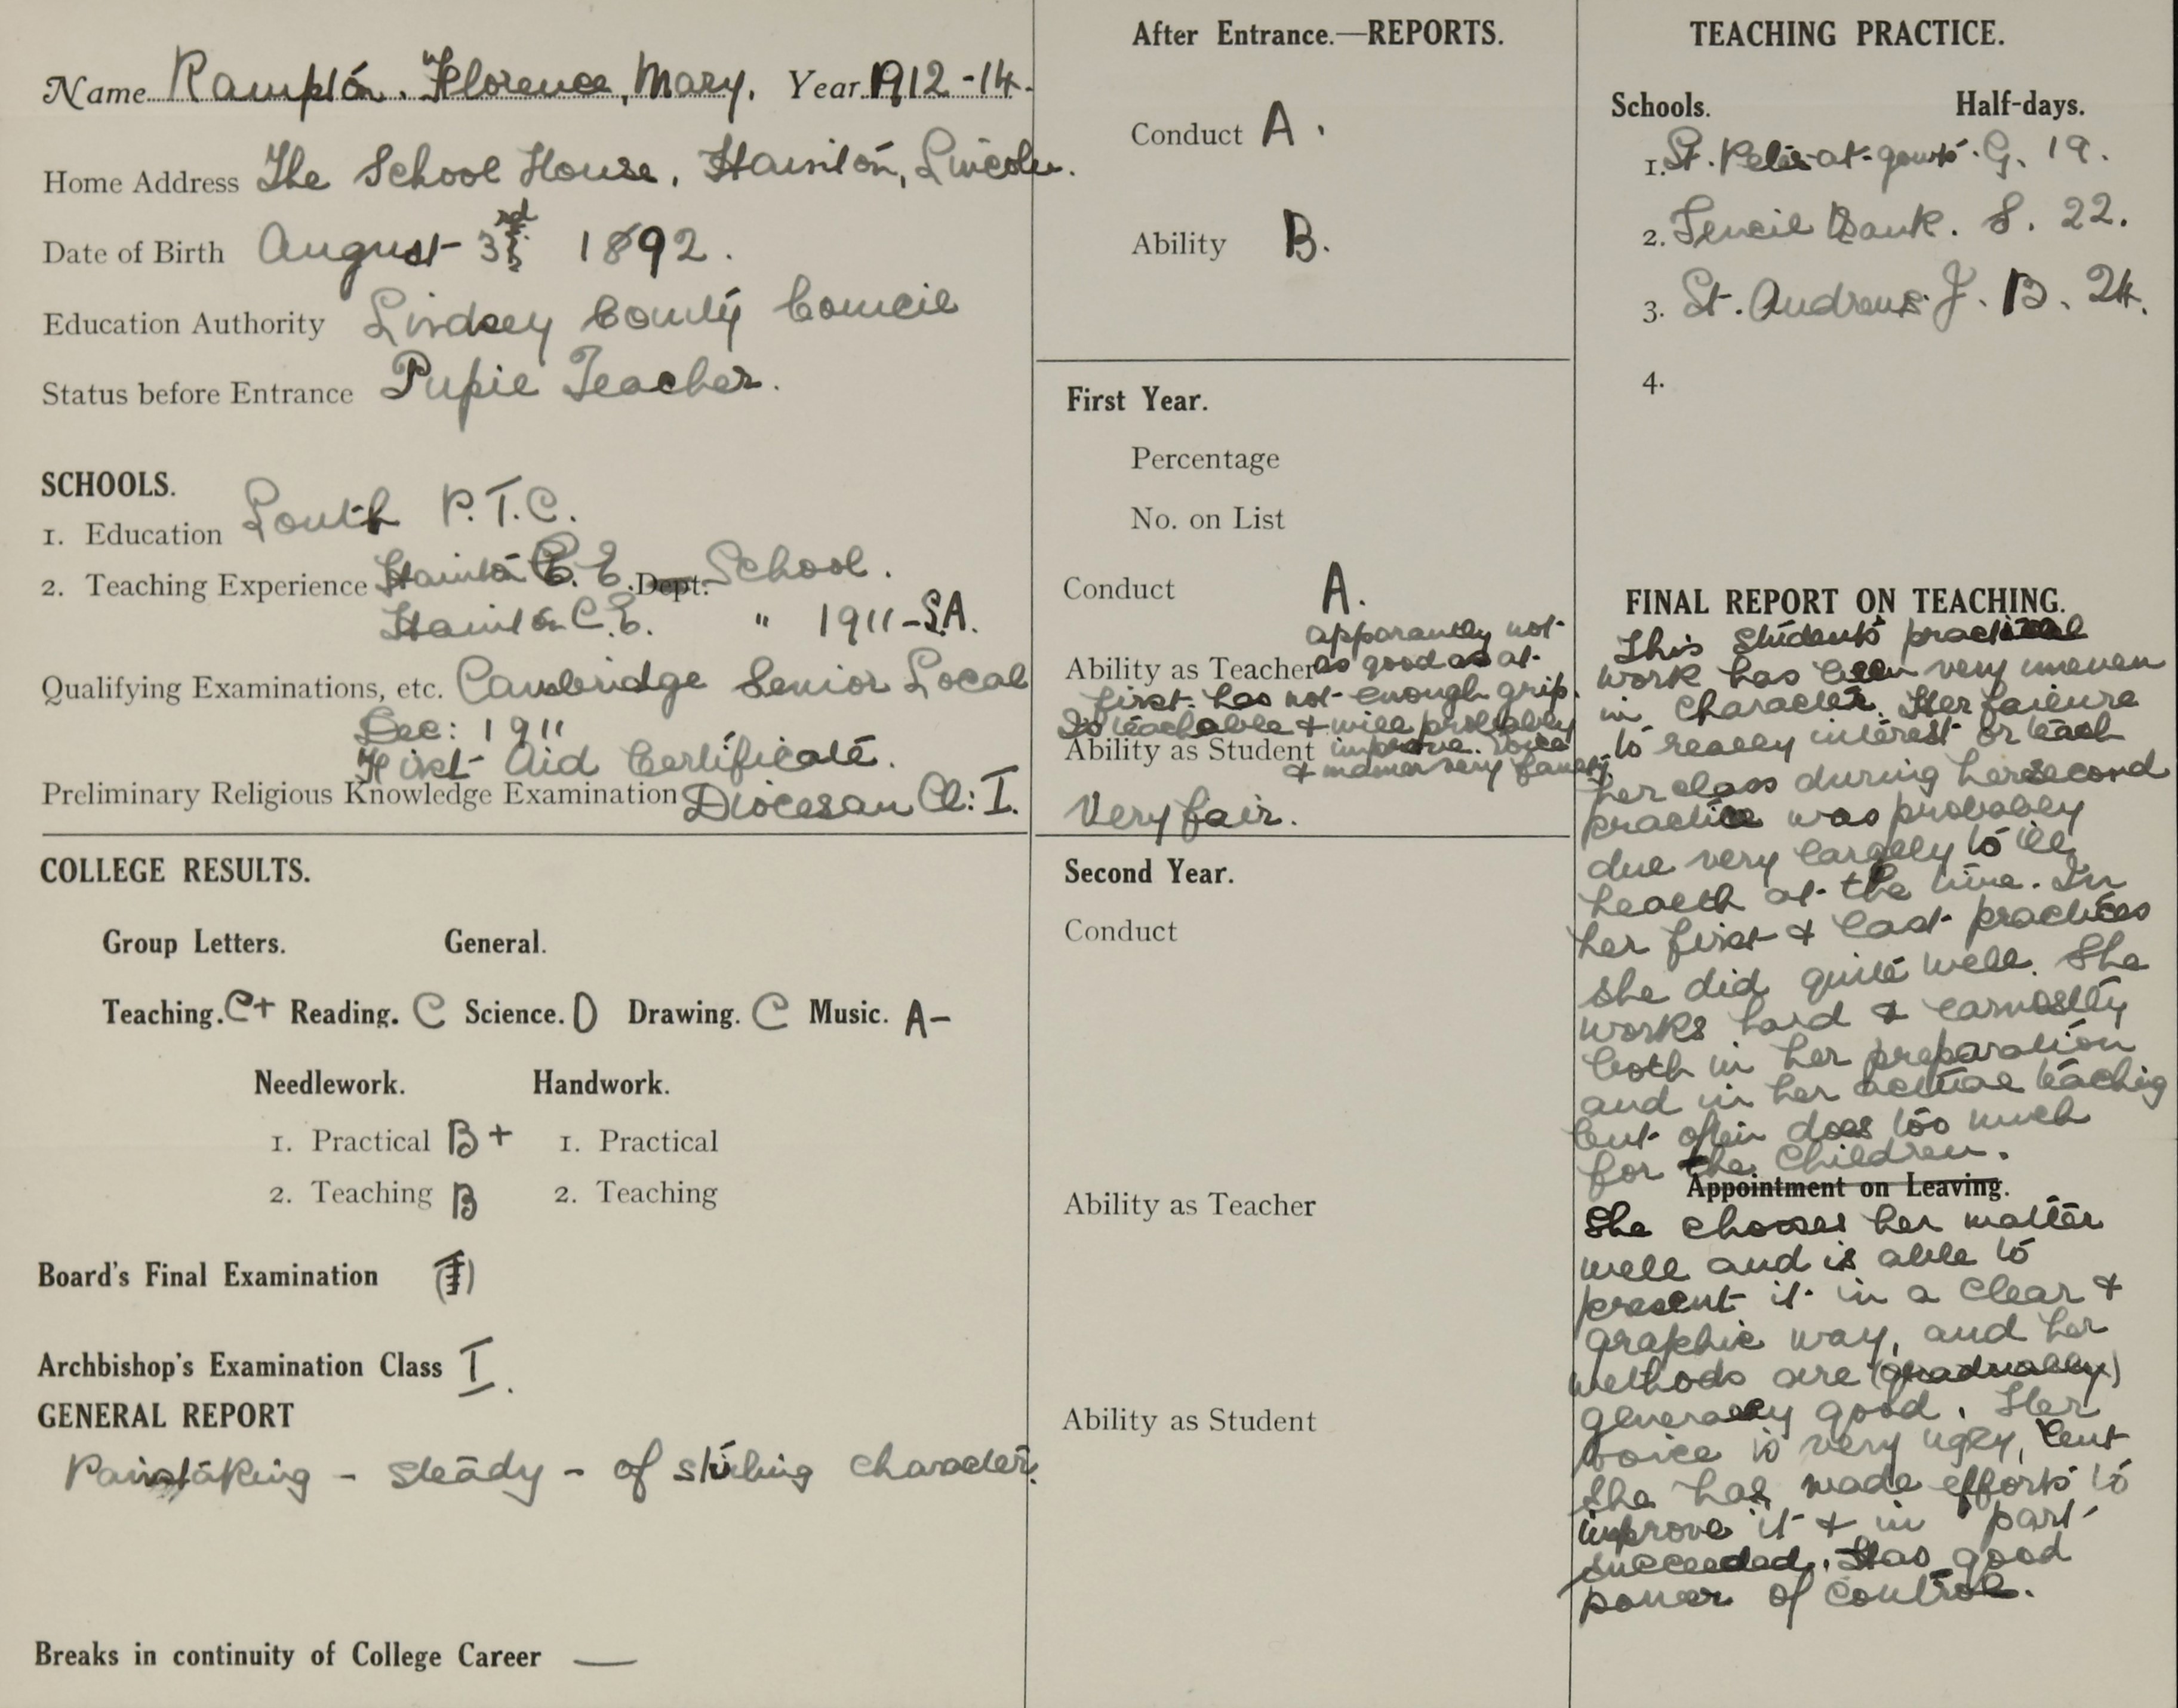 Name Rampton. Florence, Mary. Year 1912-14.
Home Address The School House, Hainton, Lincoln.
Date of Birth August 3rd 1892.
Education Authority Lindsey County Council
Status before Entrance Pupil Teacher.
SCHOOLS.
1. Education Louth P.T.C.
2. Teaching Experience Hainton C.E. Dept. School.
Hainton C.E. " 1911-S.A.
Qualifying Examinations, etc. Cambridge Senior Local
Dec: 1911
First Aid Certificate.
Preliminary Religious Knowledge Examination Diocesan Cl: I.
COLLEGE RESULTS.
Group Letters. General.
Teaching. C+ Reading. C Science. D Drawing. C Music. A-
Needlework. Handwork.
1. Practical B+ 1. Practical
2. Teaching B 2. Teaching
Board's Final Examination
Archbishop's Examination Class I.
GENERAL REPORT
Painstaking - steady - of stirling character.
Breaks in continuity of College Career —
After Entrance.—REPORTS.
Conduct A.
Ability B.
First Year.
Percentage
No. on List
Conduct A.
apparantly not
Ability as Teacher as good as at
first. has not enough grip.
Is teachable & will probably
Ability as Student improve. Voice
& manner very
Very fair.
Second Year.
Conduct
Ability as Teacher
Ability as Student
TEACHING PRACTICE.
Schools. Half-days.
1. St. Peter-at-gowts. G. 19.
2. Sincil Bank. S. 22.
3. St. Andrews. J. B. 24.
4.
FINAL REPORT ON TEACHING.
This students practical
work has been very uneven
in character. Her failure
to really interest or teach
her class during her second
practice was probably
due very largely to ill
health at the time. In
her first & last practices
she did quite well. She
works hard & earnestly
both in her preparation
and in her actual teaching
but often does too much
for the children.
Appointment on Leaving.
She chooses her matter
well and is able to
present it in a clear &
graphic way, and her
methods are (gradually)
generally good. Her
voice is very ugly, but
she has made efforts to
improve it & in part
succeeded. Has good
power of control.